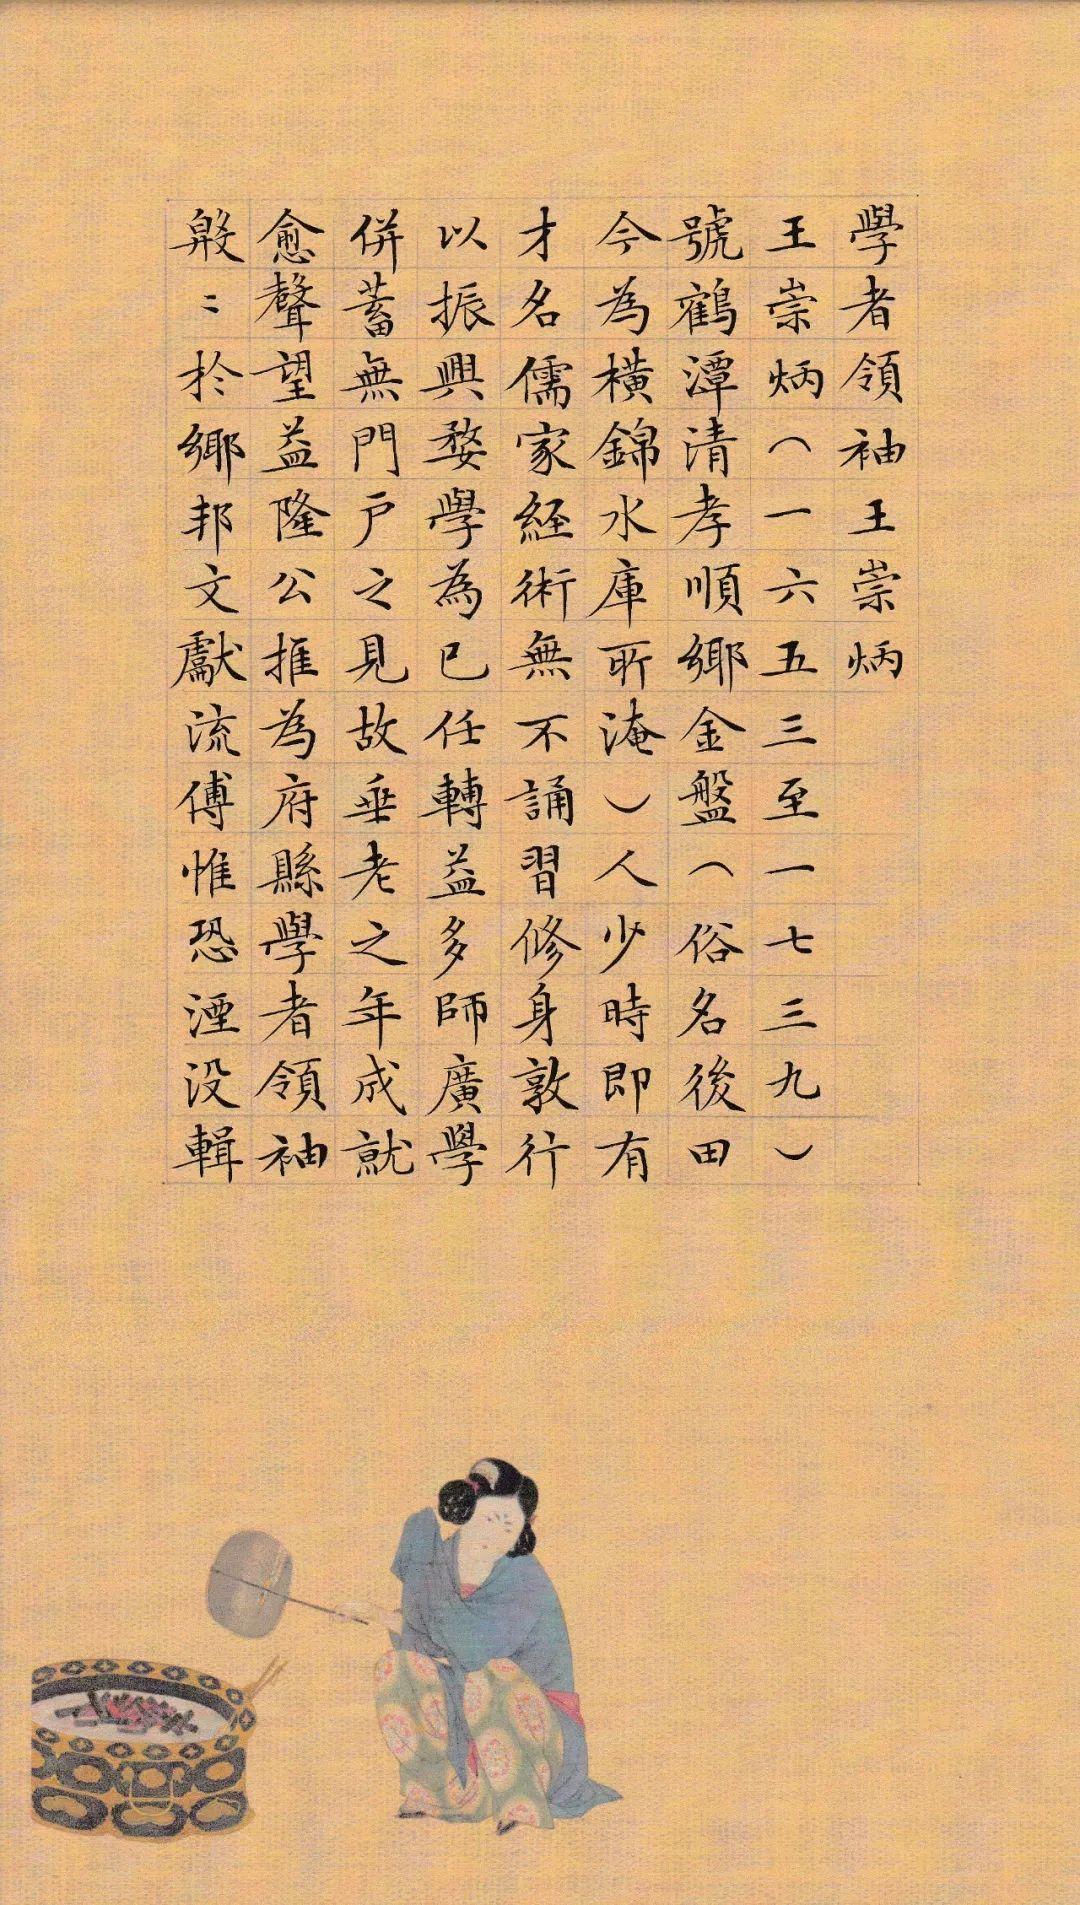 學者領袖王崇炳
王崇炳（一六五三至一七三九）
號鶴潭清孝順鄉金盤（俗名後田
今為橫錦水庫所淹）人少時即有
才名儒家経術無不誦習修身敦行
以振興婺學為已任轉益多師廣學
併蓄無門戶之見故垂老之年成就
愈聲望益隆公推為府縣學者領袖
毣〻於鄉邦文獻流傅惟恐湮没輯